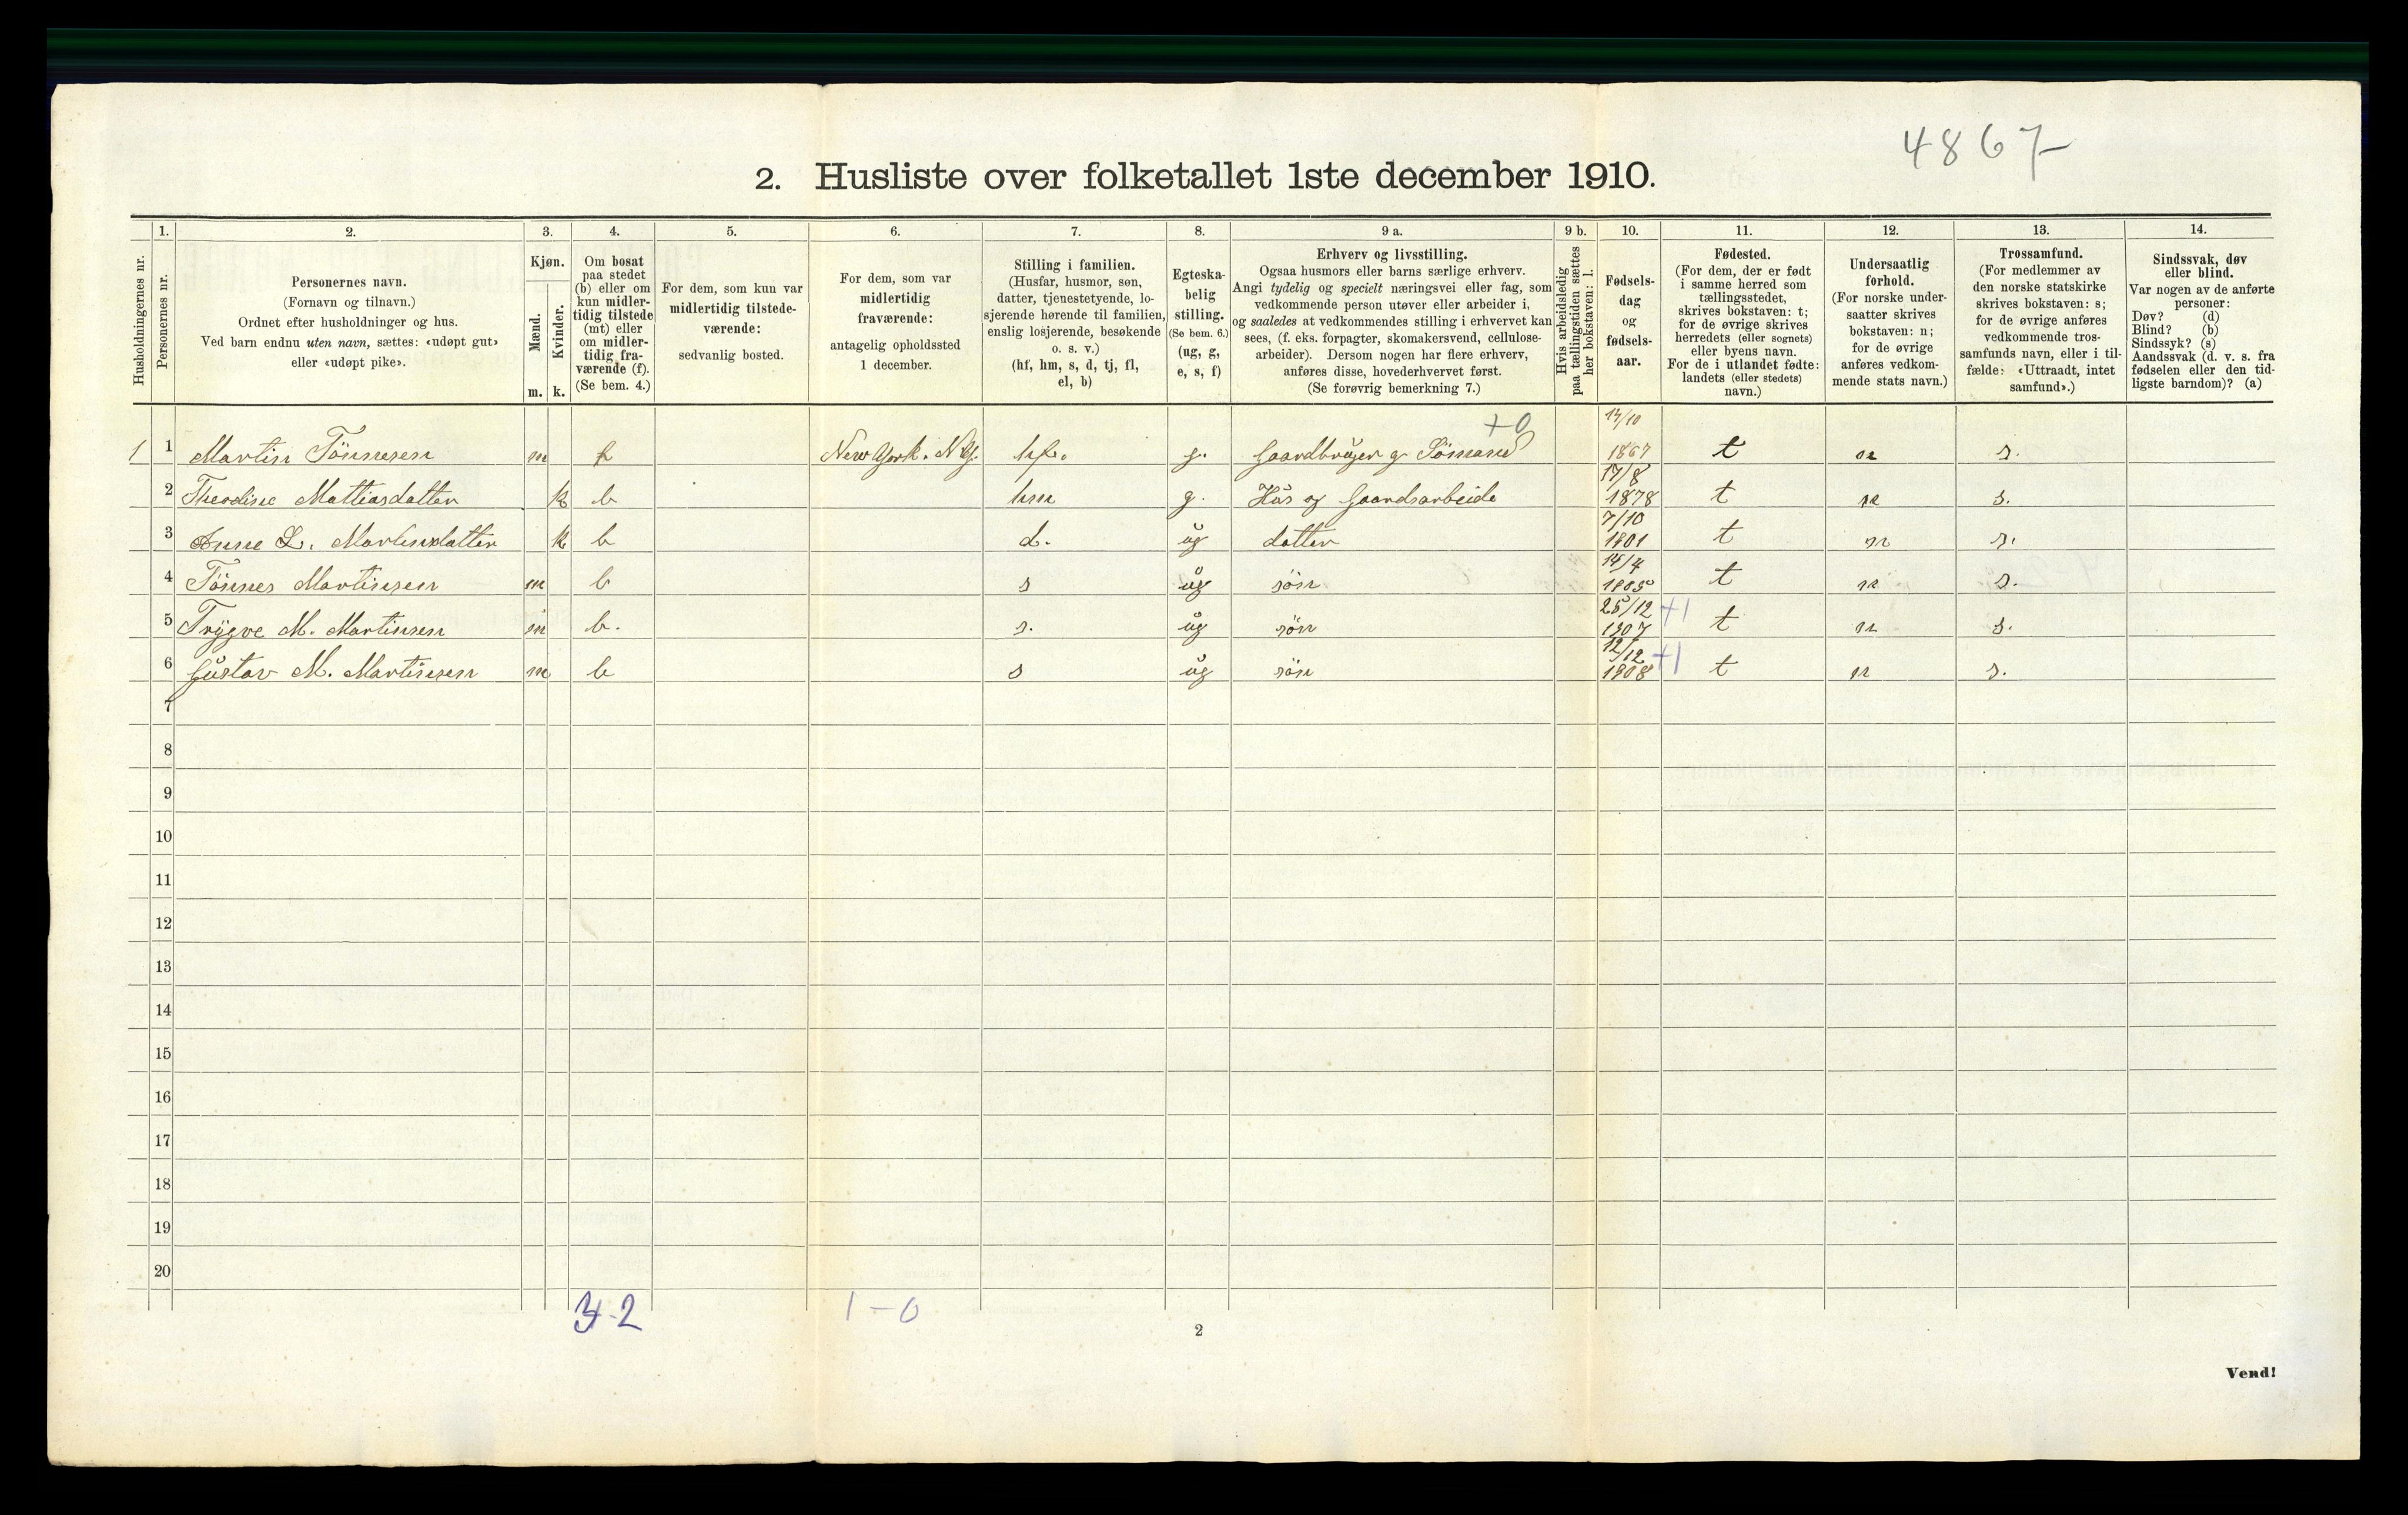 4867
2. Husliste over folketallet 1ste december 1910.
Husholdningernes nr.
1.
Personernes nr.
2.
Personernes navn.
(Fornavn og tilnavn.)
Ordnet efter husholdninger og hus.
Ved barn endnu uten navn, sættes: «udøpt gut»
eller «udøpt pike».
3.
Kjøn.
Mænd.
Kvinder.
m. k.
4.
Om bosat
paa stedet
(b) eller om
kun midler-
tidig tilstede
(mt) eller
om midler-
tidig fra-
værende (f).
(Se bem. 4.)
5.
For dem, som kun var
midlertidig tilstede-
værende:
sedvanlig bosted.
6.
For dem, som var
midlertidig
fraværende:
antagelig opholdssted
1 december.
7.
Stilling i familien.
(Husfar, husmor, søn,
datter, tjenestetyende, lo-
sjerende hørende til familien,
enslig losjerende, besøkende
o. s. v.)
(hf, hm, s, d, tj, fl,
el, b)
8.
Egteska-
belig
stilling.
(Se bem. 6.)
(ug, g,
e, s, f)
9 a.
Erhverv og livsstilling.
Ogsaa husmors eller barns særlige erhverv.
Angi tydelig og specielt næringsvei eller fag, som
vedkommende person utøver eller arbeider i,
og saaledes at vedkommendes stilling i erhvervet kan
sees, (f. eks. forpagter, skomakersvend, cellulose-
arbeider). Dersom nogen har flere erhverv,
anføres disse, hovederhvervet først.
(Se forøvrig bemerkning 7.)
9 b.
Hvis arbeidsledig
paa tællingstiden sættes
her bokstaven: l.
10.
Fødsels-
dag
og
fødsels-
aar.
11.
Fødested.
(For dem, der er født
i samme herred som
tællingsstedet,
skrives bokstaven: t;
for de øvrige skrives
herredets (eller sognets)
eller byens navn.
For de i utlandet fødte:
landets (eller stedets)
navn.)
12.
Undersaatlig
forhold.
(For norske under-
saatter skrives
bokstaven: n;
for de øvrige
anføres vedkom-
mende stats navn.)
13.
Trossamfund.
(For medlemmer av
den norske statskirke
skrives bokstaven: s;
for de øvrige anføres
vedkommende tros-
samfunds navn, eller i til-
fælde: «Uttraadt, intet
samfund».)
14.
Sindssvak, døv
eller blind.
Var nogen av de anførte
personer:
Døv? (d)
Blind? (b)
Sindssyk? (s)
Aandssvak (d. v. s. fra
fødselen eller den tid-
ligste barndom)? (a)
+0
1 1 Martin Tönnesen m f New York. N Y. hf. g. Gaardbrüger g Sömand 14/10 1867 t n s.
2 Theodine Mattiasdatter k b hm g. Hüs og Gaardsarbeide 17/8 1878 t n s.
3 Anne L. Martinsdatter k b d. üg datter 7/10 1901 t n s.
4 Tönnes Martinsen m b s üg sön 14/4 1905 t n s.
5 Trygve M. Martinsen m b. s. üg sön 25/12 1907 +1 t n s.
6 Güstav M. Martinsen m b s üg sön 12/12 1908 +1 t n s.
7
8
9
10
11
12
13
14
15
16
17
18
19
20
3-2
1-0
2
Vend!